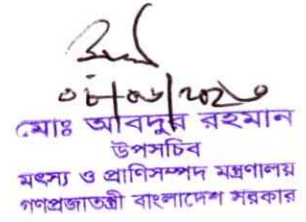 ০৮/০৬/২০২০
মোঃ আবদুর রহমান
উপসচিব
মৎস্য ও প্রাণিসম্পদ মন্ত্রণালয়
গণপ্রজাতন্ত্রী বাংলাদেশ সরকার